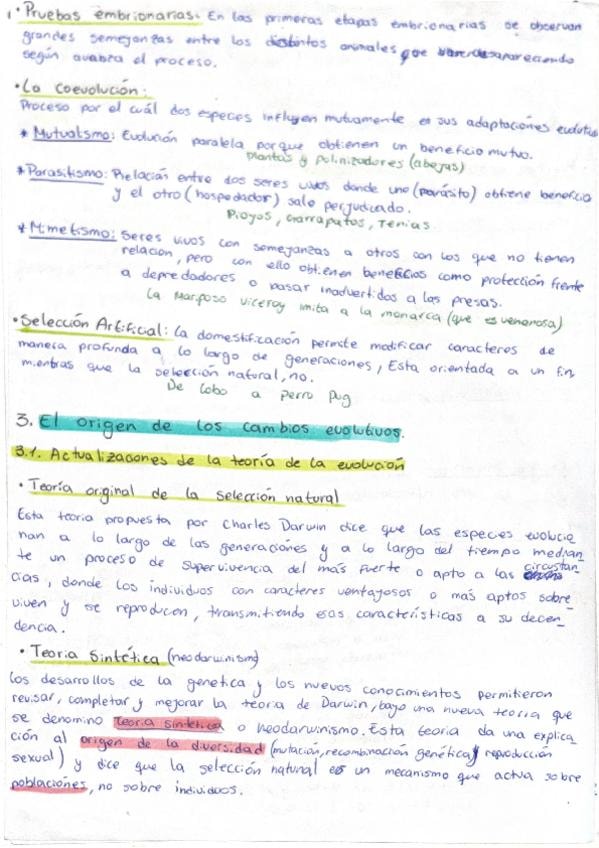 • Pruebas embrionarias: En las primeras etapas embrionarias se observan
grandes semejanzas entre los distintos animales que van desapareciendo
según avanza el proceso.
• La Coevolución:
Proceso por el cuál dos especies influyen mutuamente en sus adaptaciones evolutivas
* Mutualismo: Evolución paralela porque obtienen un beneficio mutuo.
Plantas y polinizadores (abejas)
* Parasitismo: Relación entre dos seres vivos donde uno (parásito) obtiene beneficio
y el otro (hospedador) sale perjudicado.
Pioyos, Garrapatas, Tenias.
* Mimetismo: Seres vivos con semejanzas a otros con los que no tienen
relación, pero con ello obtienen beneficios como protección frente
a depredadores o pasar inadvertidos a las presas.
La Mariposa Viceroy imita a la monarca (que es venenosa)
• Selección Artificial: La domestificación permite modificar caracteres de
manera profunda a lo largo de generaciones, Esta orientada a un fin
mientras que la selección natural, no.
De Lobo a perro Pug
3. El origen de los cambios evolutivos.
3.1. Actualizaciones de la teoría de la evolución
• Teoría original de la selección natural
Esta teoria propuesta por Charles Darwin dice que las especies evolucio
nan a lo largo de las generaciónes y a lo largo del tiempo median
te un proceso de supervivencia del más fuerte o apto a las circustan
cias, donde los individuos con caracteres ventajosos o más aptos sobre
viven y se reproducen, transmitiendo esas características a su decen
dencia.
• Teoria Sintética (neodarwinismo)
Los desarrollos de la genética y los nuevos conocimientos permitieron
revisar, completar y mejorar la teoria de Darwin, bajo una nueva teoría que
se denomino teoria sintética o neodarwinismo. Esta teoria da una explica
ción al origen de la diversidad (mutación, recombinación genética y reproducción
sexual) y dice que la selección natural es un mecanismo que actua sobre
poblaciónes, no sobre individuos.